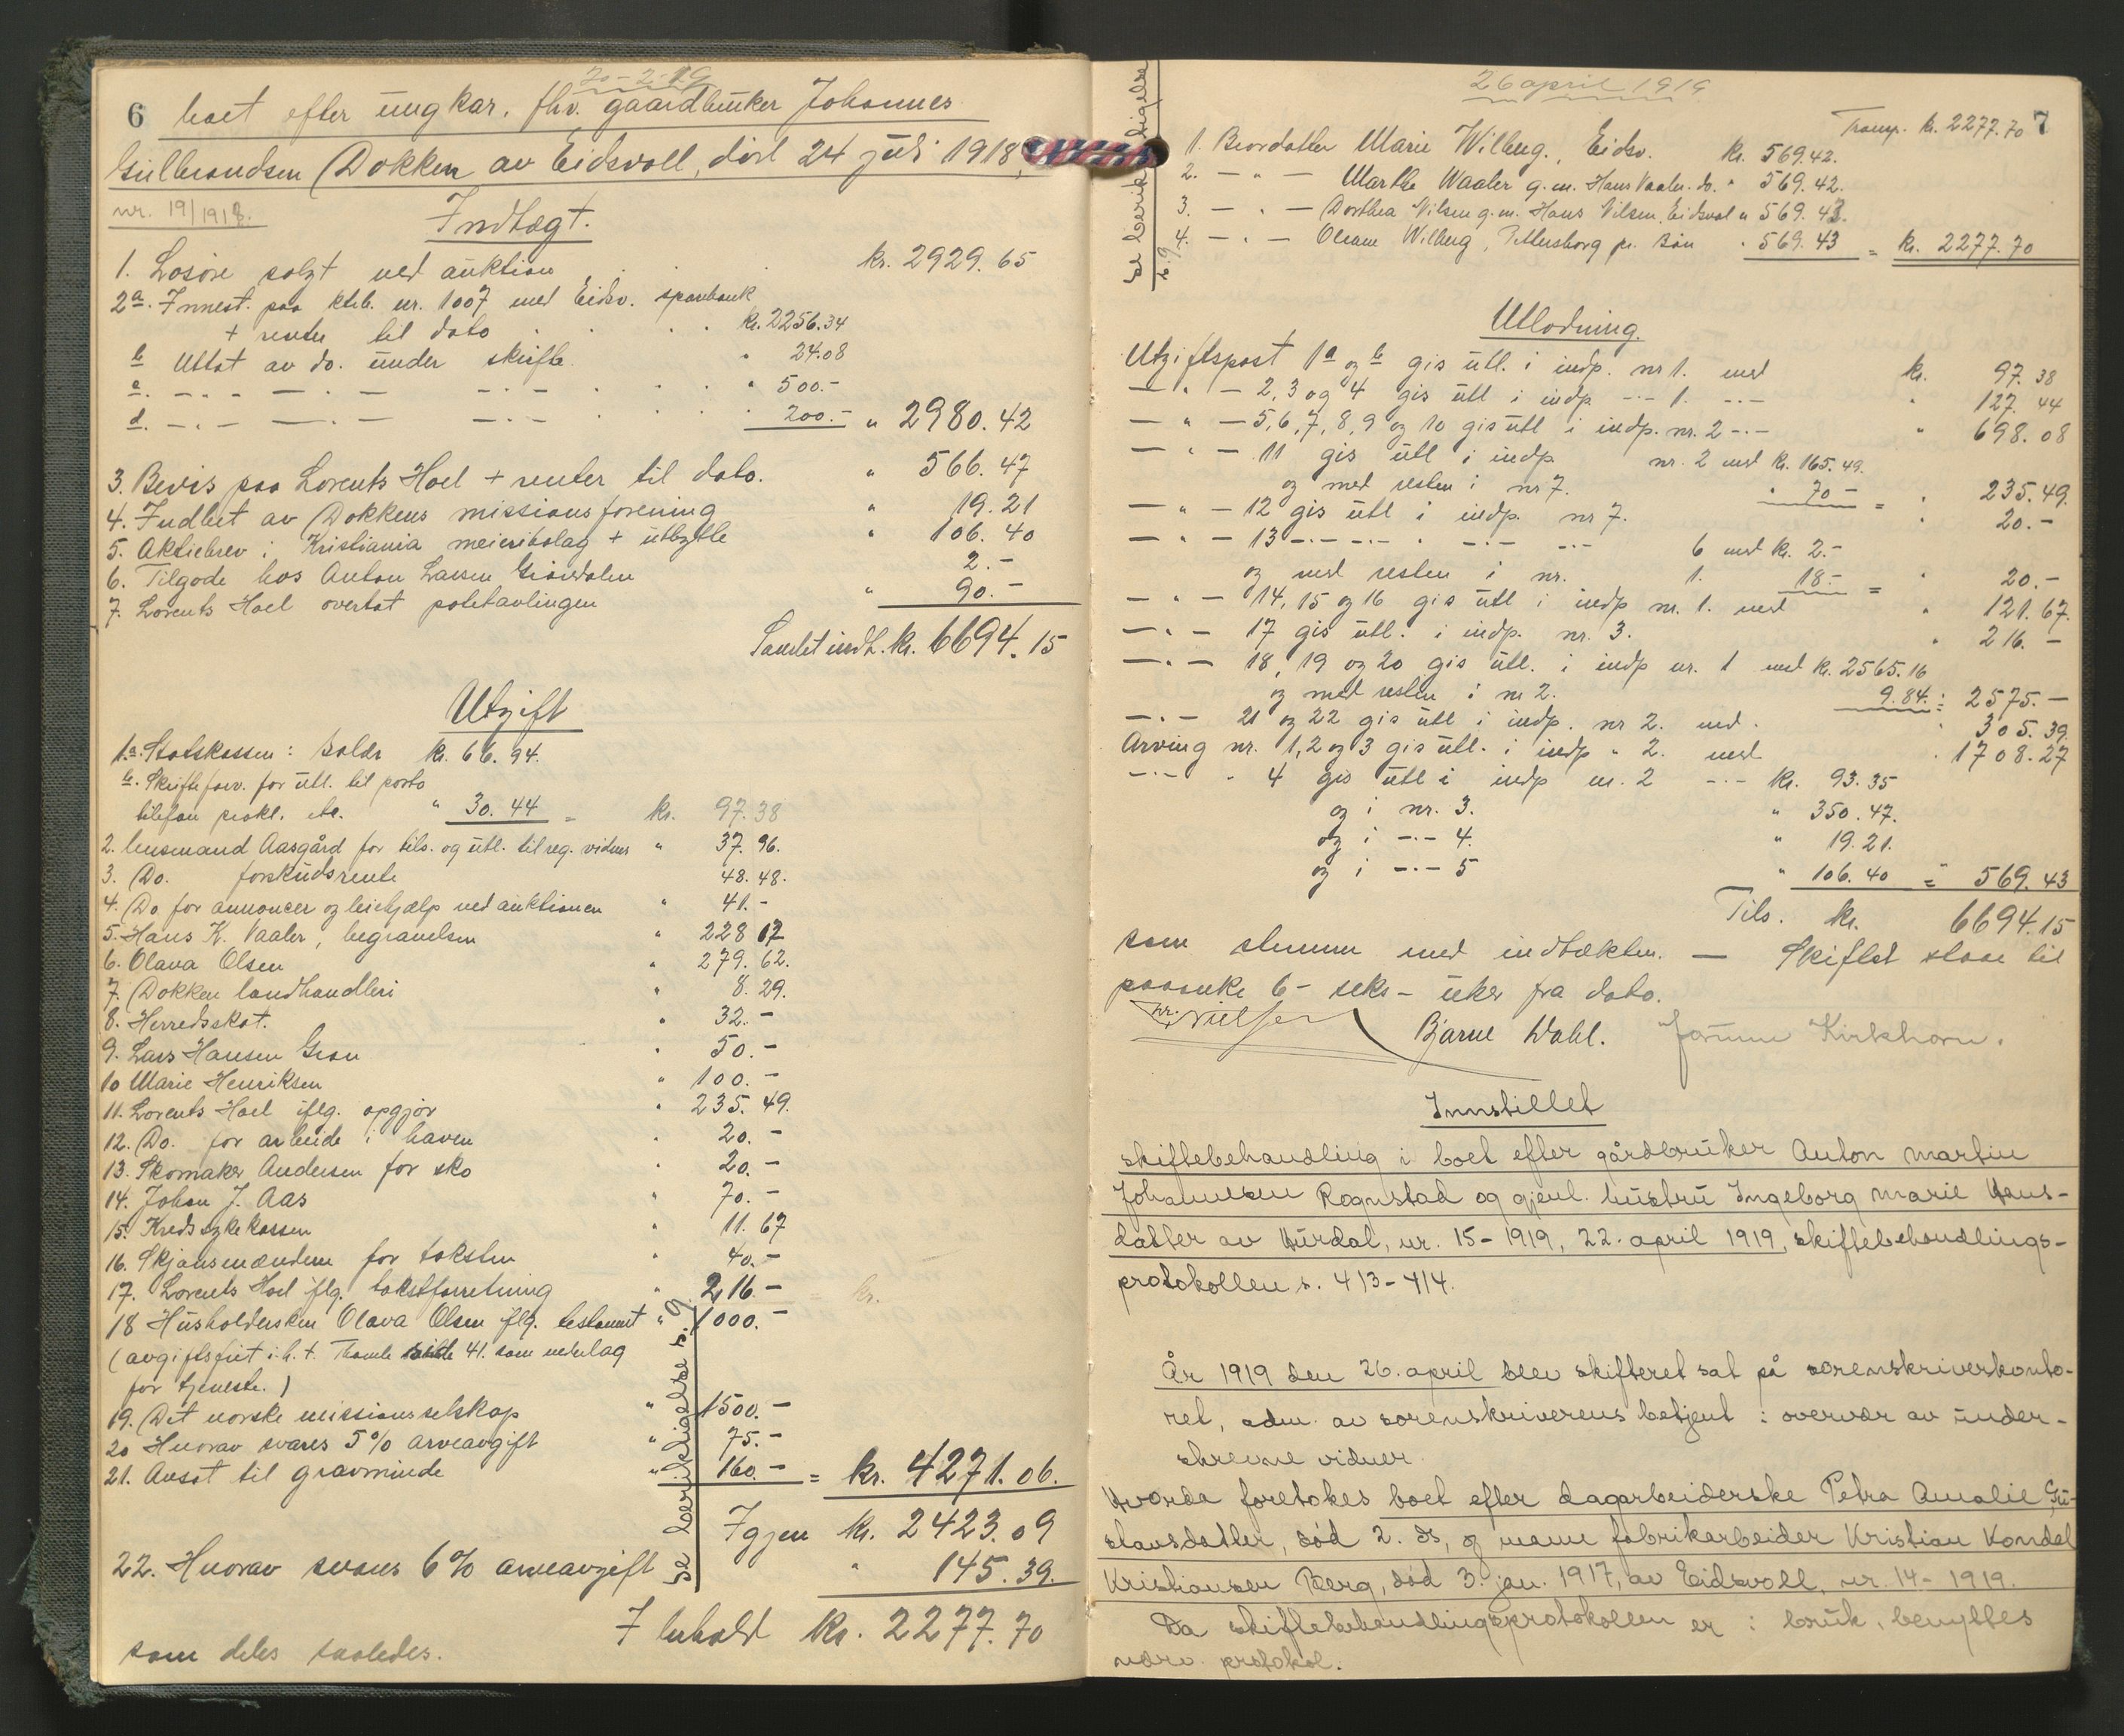 20-2-19
6 boet efter ungkar, fhv. gaardbruker Johannes
Gulbrandsen Dokken av Eidsvoll, död 24 juli 1918,
nr. 19/1918.
Indtægt.
1. Løsöre solgt ved auktion . . . kr. 2929.65
2a. Innest. paa ktrb. nr. 1007 med Eidsv. sparebank
+ renter til dato . . . . kr. 2256.34
b Uttat av do. under skifte " 24.08
c. — . — — . — — . — . . . " 500.-
d. — . — — . — — . — . . . 200.- " 2980.42
3. Bevis paa Lorents Hoel + renter til dato. " 566.47
4. Indbet av Dokkens missionsforening " 19.21
5. Aktiebrev i Kristiania meieribolag + utbytte " 106.40
6. Tilgode hos Anton Larsen 2.-
7. Lorents Hoel overtat potetavlingen " 90.-
Samlet indt. kr. 6694.15
Utgift
1.a. Statskassen: Boldr kr. 66.94.
b. Skifteforv. for utl. til porto
telefon prokl. etc. " 30.44 = kr. 97.38
2. lensmand Aasgård for tils. og utl. til reg. vidner " 37.96.
3. Do. forskudsrente 48.48.
4. Do for annoncer og leiehjælp ved auktionen " 41.-
5. Hans K. Vaaler, begravelsen " 228 67
6. Olava Olsen " 279.62.
7. Dokken landhandleri " 8.29.
8. Herredsskat. " 32.-
9. Lars Hansen Gran " 50.-
10 Marie Henriksen " 100.-
11. Lorents Hoel iflg. opgjör " 235.49.
12. Do. for arbeide i haven " 20.-
13. Skomaker Andersen for sko " 20.-
14. Johan J. Aas " 70.-
15. Kredssykekassen " 11.67
16. Skjönsmændene for taksten " 40.-
17. Lorents Hoel iflg. takstforretning " 216.- = kr.
18 Husholdersken Olava Olsen iflg. testament " 1000.-
(avgiftsfrit i.h.t. Thomle side 41. som vederlag
for tjeneste.)
19. Det norske missionsselskap " 1500.-
20 Hvorav svares 5% arveavgift " 75.-
21. Avsat til gravminde " 160.- = kr. 4271.06.
Igjen kr. 2423.09
22. Hvorav svares 6% arveavgift " 145.39.
I behold kr. 2277.70
som deles saaledes.
se beriktigelse s. 9
26 april 1919.
7
Transp. kr. 2277.70
se beriktigelse s. 9
1. Brordatter Marie Wilberg, Eidsv. kr. 569.42.
2. — " — Marthe Waaler g.m. Hans Vaaler. do. " 569.42.
3. — " — Dorthea Nilsen g.m. Hans Nilsen, Eidsvol " 569.43.
4. — " — Oleane Wilberg, Pettersborg pr. Bön " 569.43 = kr. 2277.70
Utlodning.
Utgiftspost 1a og b gis utl. i indp. nr 1. med kr. 97.38
— " — 2, 3 og 4 gis utl i indp — . — 1. — . — " 127.44
— " — 5, 6, 7, 8, 9 og 10 gis utl i indp. nr. 2 — . — " 698.08
— " — 11 gis utl i indp nr. 2 med kr. 165.49.
og med resten i nr 7. " 70 - = " 235.49.
— " — 12 gis utl i indp. nr 7. " 20.-
— " — 13 — . — — . — " — . — — . — 6 med kr. 2.-
og med resten i nr. 1. 18.- = " 20.-
— " — 14, 15 og 16 gis utl i indp nr. 1. med " 121.67.
— " — 17 gis utl. i indp. nr. 3. " 216.-
— " — 18, 19 og 20 gis utl. i indp nr. 1 med kr. 2565.16
og med resten i nr 2. 9.84. = 2575.-
— . — 21 og 22 gis utl i indp. nr 2. med . " 305.39.
Arving nr. 1, 2 og 3 gis utl. i indp " 2. med " 1708.27
— . — " 4 gis utl i indp nr. 2 — . — kr. 93.35
og i nr. 3. " 350.47.
og i — . — 4. " 19.21.
og i — . — 5 " 106.40 = " 569.43
Tils. kr. 6694.15
som stemmer med indtækten. — Skiftet staar til
paaanke 6- seks- uker fra dato.
Nielsen Bjarne Dahl. Kirkhorn.
Innstillet
skiftebehandling i boet efter gårdbruker Anton Martin
Johannesen Rognstad og gjenl. hustru Ingeborg Marie Hans-
datter av Hurdal, nr. 15-1919, 22. april 1919, skiftebehandlings-
protokollen s. 413-414.
År 1919 den 26. april blev skifteret sat på sorenskriverkonto-
ret, adm. av sorenskriverens betjent i overvær av under-
skrevne vidner.
Hvorda foretokes boet efter dagarbeiderske Petra Amalie Gu-
stavsdatter, død 2. ds, og mann fabrikarbeider Kristian Kondal
Kristiansen Berg, død 3. jan. 1917, av Eidsvoll, nr. 14-1919.
Da skiftebehandlingsprotokollen er i bruk, benyttes
nærv. protokol.